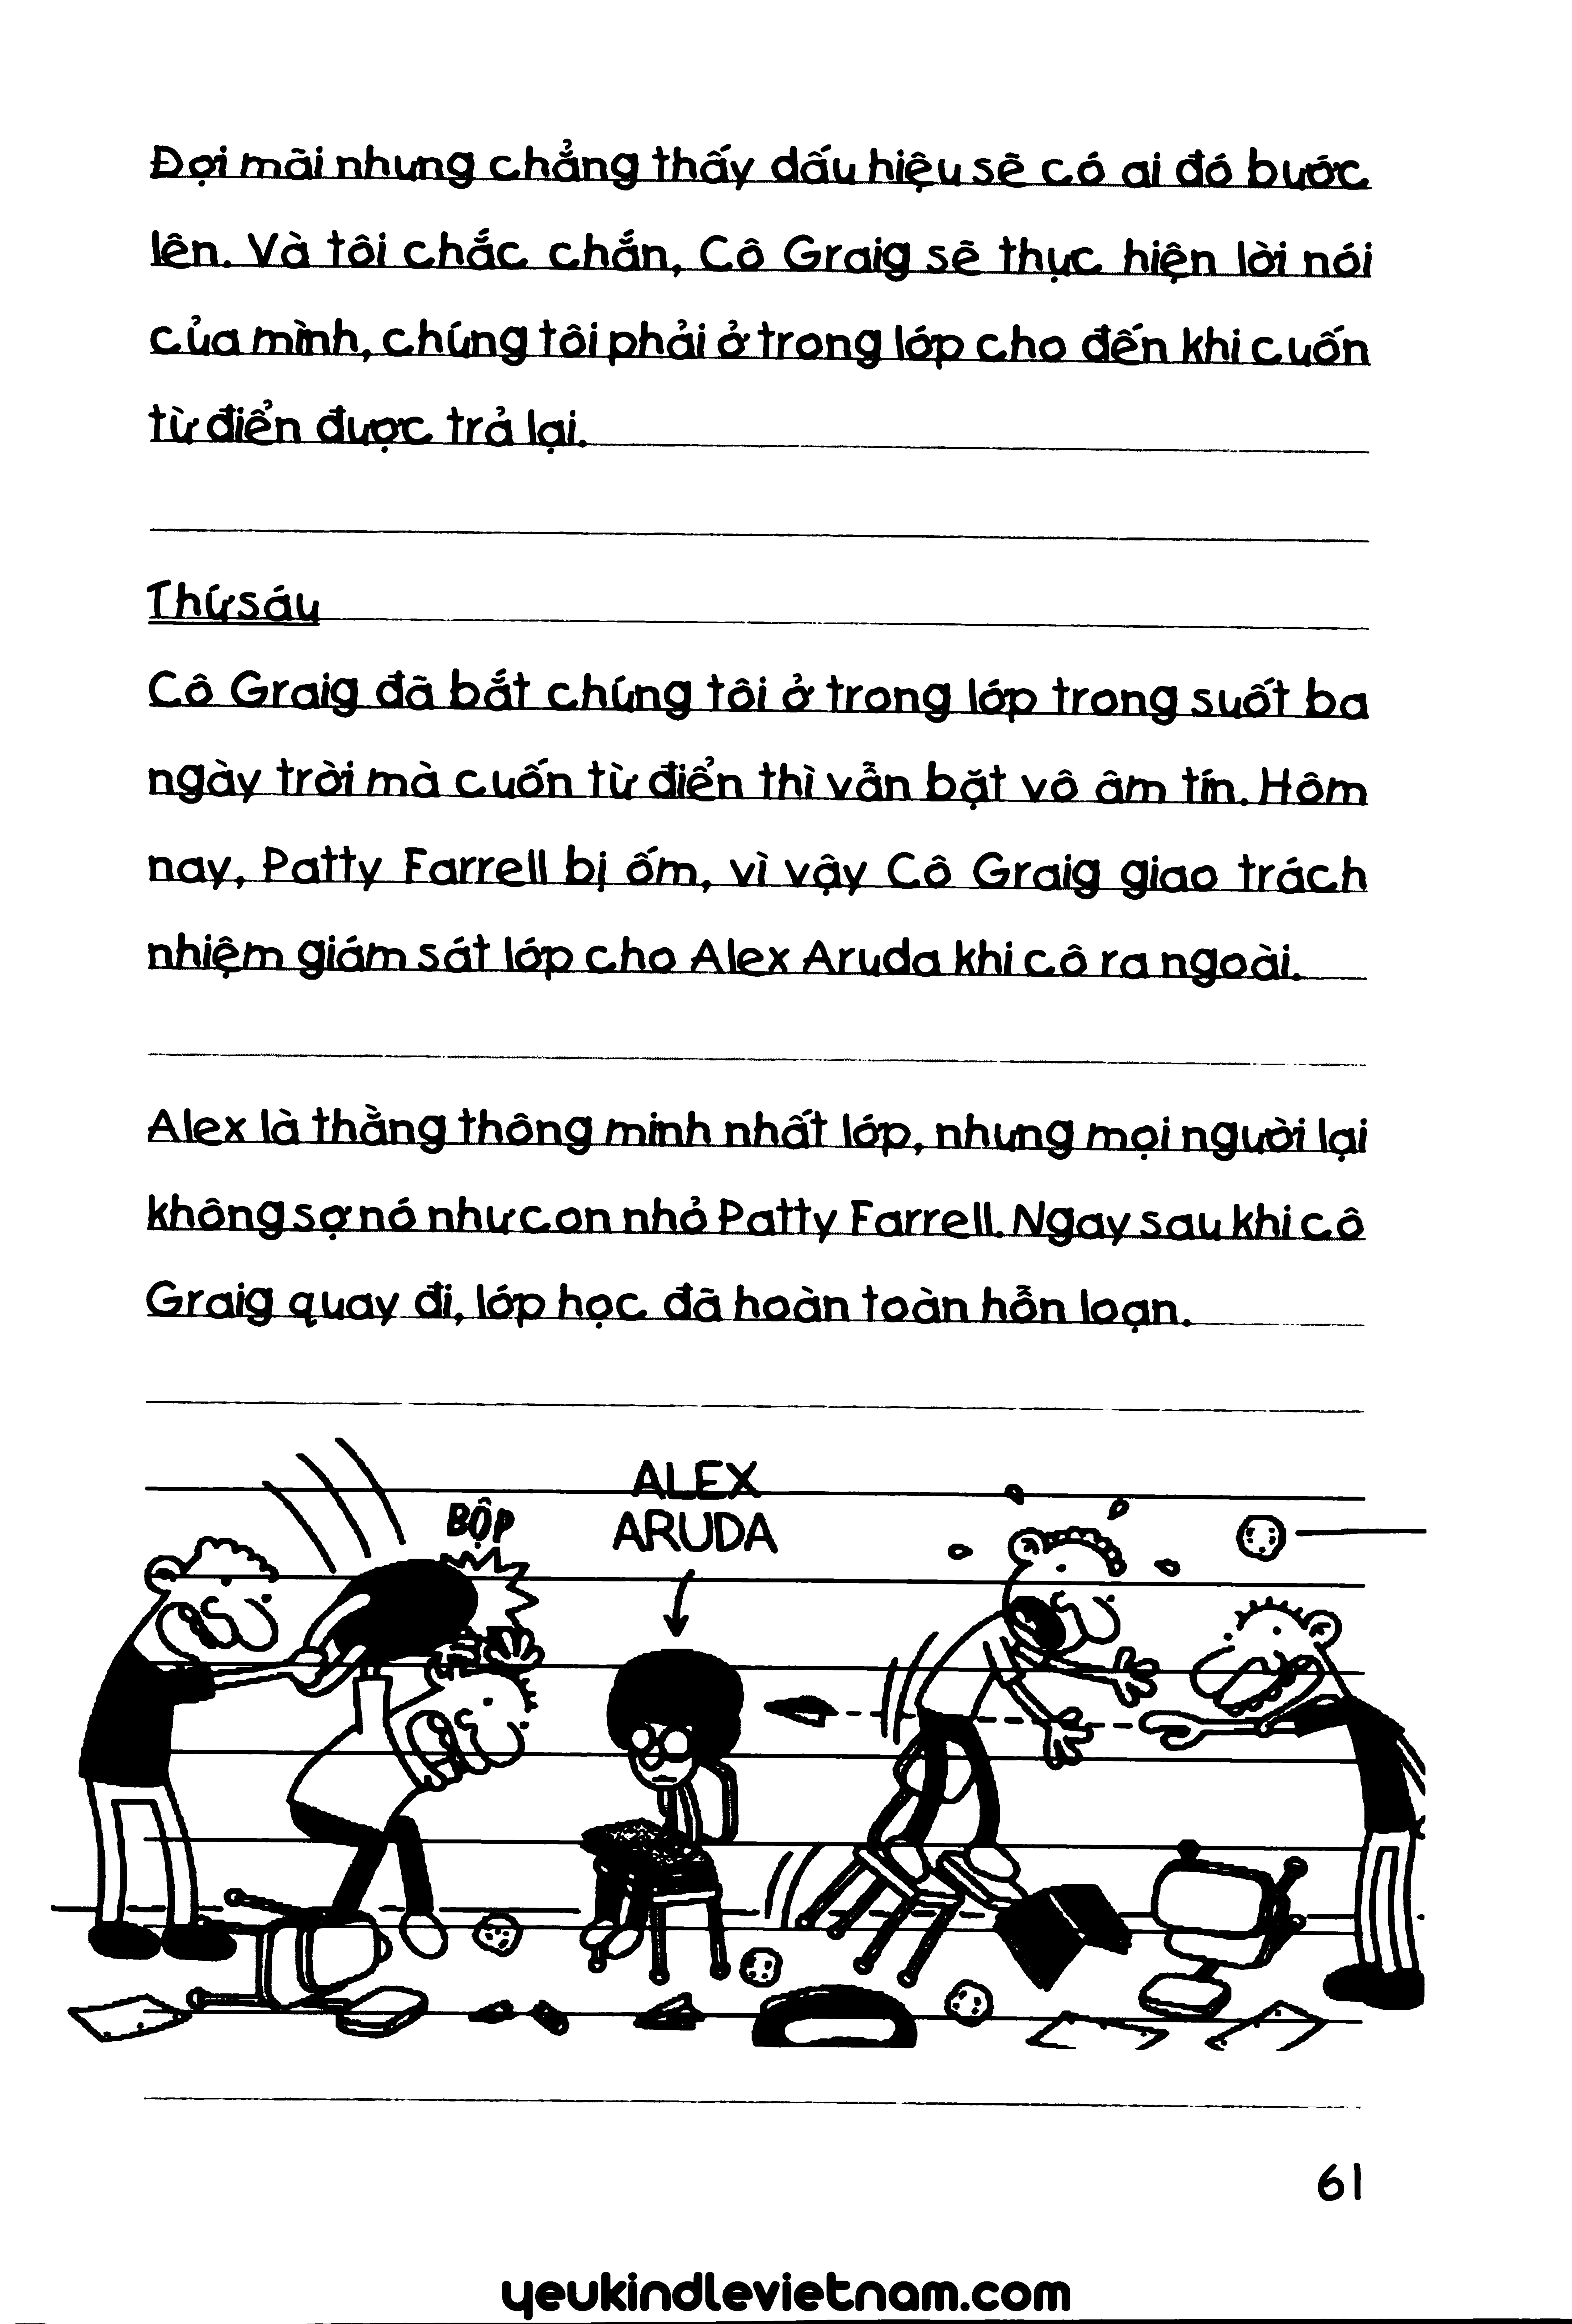 Đợi mãi nhưng chẳng thấy dấu hiệu sẽ có ai đó bước
lên. Và tôi chắc chắn, Cô Graig sẽ thực hiện lời nói
của mình, chúng tôi phải ở trong lớp cho đến khi cuốn
từ điển được trả lại.
Thứ sáu
Cô Graig đã bắt chúng tôi ở trong lớp trong suốt ba
ngày trời mà cuốn từ điển thì vẫn bặt vô âm tín. Hôm
nay, Patty Farrell bị ốm, vì vậy Cô Graig giao trách
nhiệm giám sát lớp cho Alex Aruda khi cô ra ngoài.
Alex là thằng thông minh nhất lớp, nhưng mọi người lại
không sợ nó như con nhỏ Patty Farrell. Ngay sau khi cô
Graig quay đi, lớp học đã hoàn toàn hỗn loạn.
BỘP
ALEX
ARUDA
61
yeukindlevietnam.com